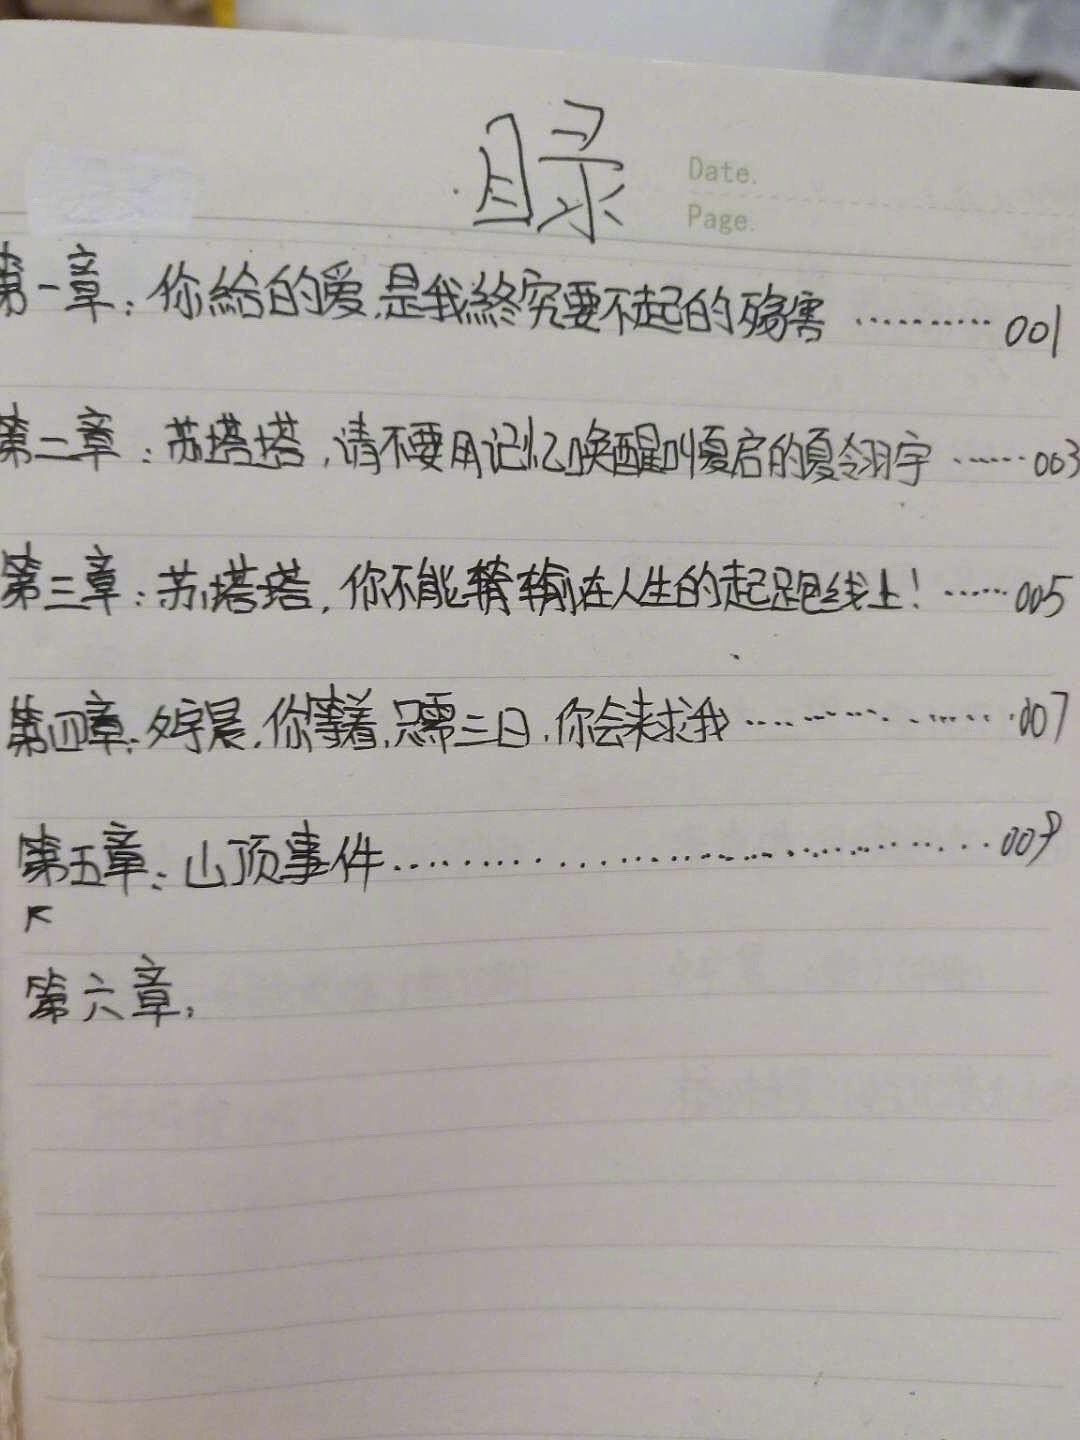 目录
Date.
Page.
第一章：你給的爱,是我終究要不起的殇害 ………… 001
第二章：苏塔塔,请不要用记忆唤醒叫夏启的夏翎宇 …… 003
第三章：苏塔塔,你不能输在人生的起跑线上！…… 005
第四章：夕宇晨,你等着,只需三日,你会来求我 ………… 007
第五章：山顶事件 ………………… 009
第六章：